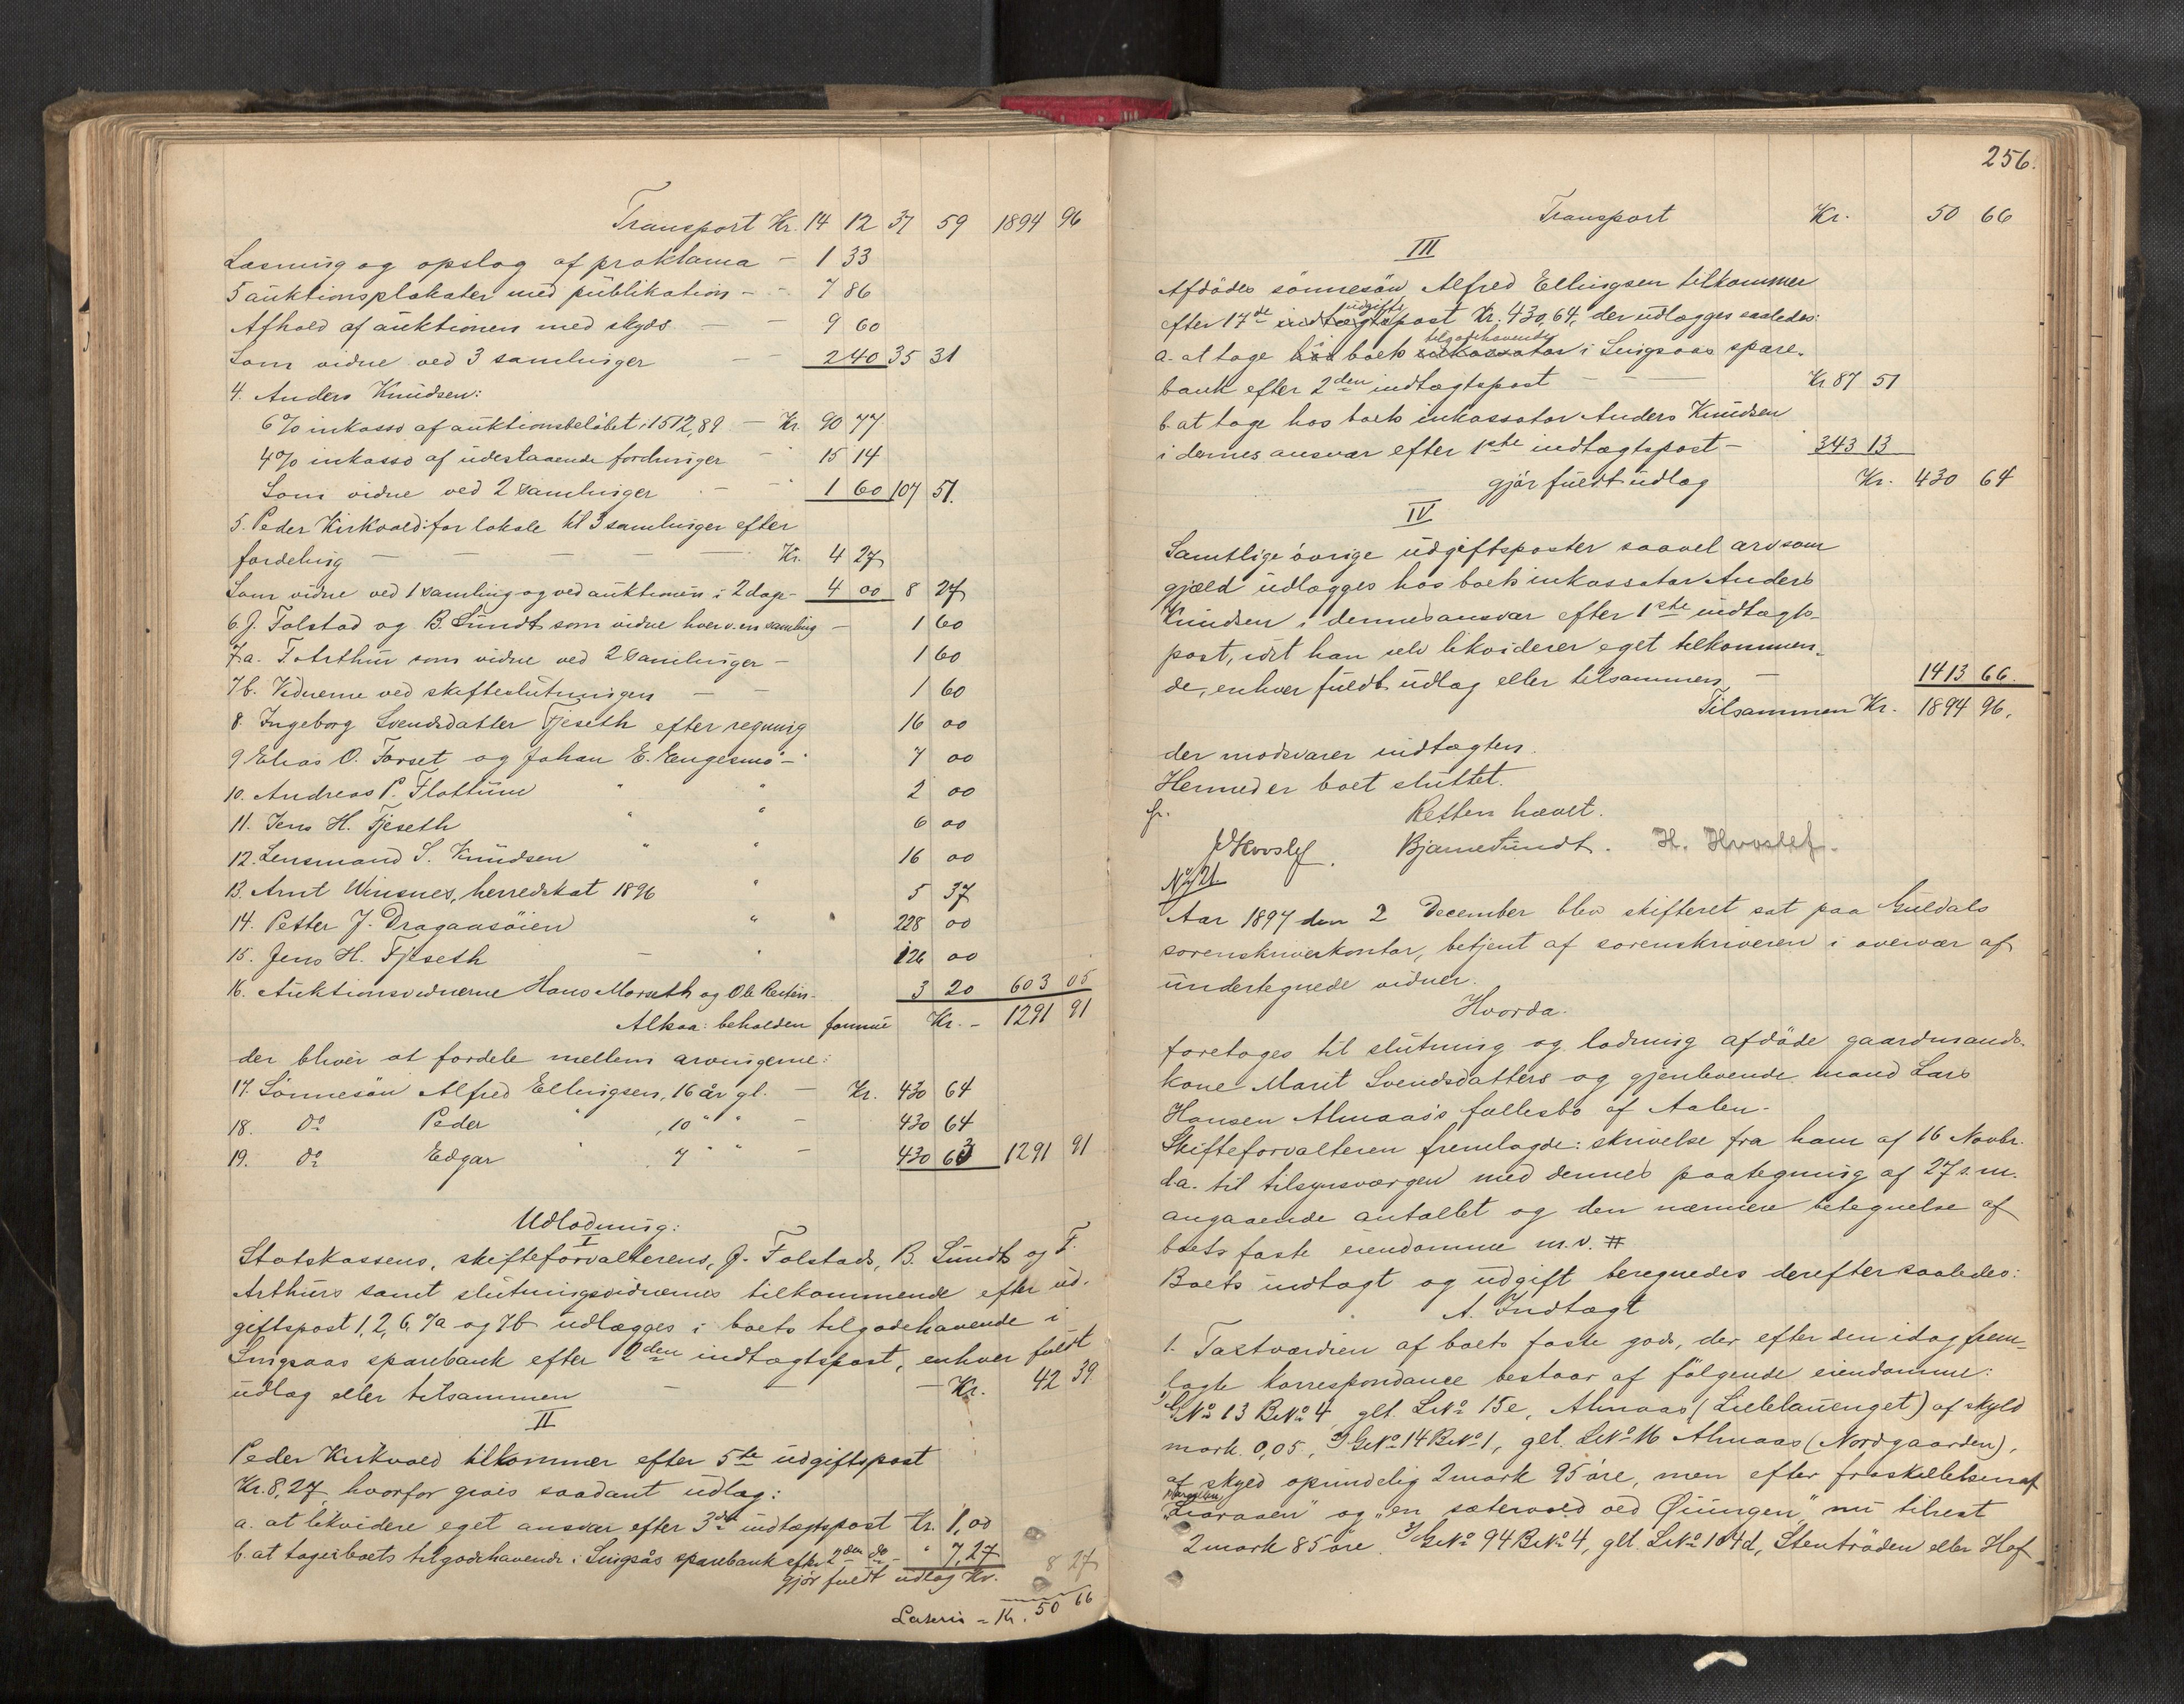 Transport Kr. 14 12 37 59 1894 96
Læsning og opslag af proklama - 1 33
5 auktionsplakater med publikation - - 7 86
Afhold af auktionen med skyds - - 9 60
Som vidne ved 3 samlinger - - 2 40 35 31
4. Anders Knudsen:
6 % inkasso af auktionsbeløbet: 1512,89 - Kr. 90 77
4 % inkasso af udestaaende fordringer - 15 14
Som vidne ved 2 samlinger - 1 60 107 51.
5. Peder Kirkvold: for lokale til 3 samlinger efter
fordeling - - - - Kr. 4 27
Som vidne ved 1 samling og ved auktionen i 2 dage - 4 00 8 27
6. J. Folstad og B. Sundt som vidne hver v. en samling - 1 60
7.a. F. Arthur som vidne ved 2 samlinger - 1 60
7b. Vidnerne ved skifteslutningen - - 1 60
8. Ingeborg Svendsdatter Fjeseth efter regning 16 00
9. Elias O. Forset og Johan E. Engesmo - " 7 00
10. Andreas P. Flottum " " 2 00
11. Jens H. Fjeseth " " 6 00
12. Lensmand S. Knudsen " " 16 00
13. Arnt Winsnes, herredskat 1896 " 5 37
14. Petter J. Dragaasøien " " 228 00
15. Jens H. Fjeseth - " 126 00
16. Auktionsvidnerne Hans Morseth og Ole - 3 20 603 05
Altsaa: beholden formue Kr. - 1291 91
der bliver at fordele mellem arvingerne:
17. Sønnesøn Alfred Ellingsen, 16 år gl. - Kr. 430 64
18. do Peder " , 10 " " - 430 64
19. do Edgar " , 7 " " - 430 63 1291 91
Udlodning:
I
Statskassens, skifteforvalterens, J. Folstads, B. Sundts og F.
Arthurs samt slutningsvidnernes tilkommende efter ud-
giftspost 1, 2, 6, 7a og 7b udlægges i boets tilgodehavende i
Singsaas sparebank efter 2den indtægtspost, enhver fuldt
udlæg eller tilsammen - - - Kr. 42 39
II
Peder Kirkvold tilkommer efter 5te udgiftspost
Kr. 8,27, hvorfor gives saadant udlæg:
a. at likvidere eget ansvar efter 3die indtægtspost Kr. 1,00
b. at tage i boets tilgodehavende i Singsås sparebank efter 2den do - " 7,27
gjør fuldt udlæg Kr. 8 27
Lateris - Kr. 50 66
256.
Transport Kr. 50 66
III
Afdødes sønnesøn Alfred Ellingsen tilkommer
udgifts
efter 17de indtægtspost Kr. 430,64, der udlægges saaledes:
tilgodehavende
a. at tage hos boets inkassator i Singsaas spare-
bank efter 2den indtægtspost - - Kr 87 51
b. at tage hos boets inkassator Anders Knudsen
i dennes ansvar efter 1ste indtægtspost - " 343 13
gjør fuldt udlæg Kr. 430 64
IV
Samtlige øvrige udgiftsposter saavel arv som
gjæld udlægges hos boets inkassator Anders
Knudsen i dennes ansvar efter 1ste indtægts-
post, idet han selv likviderer eget tilkommen-
de, enhver fuldt udlæg eller tilsammen - 1413 66.
Tilsammen Kr. 1894 96,
der modsvarer indtægten.
Hermed er boet sluttet.
Retten hævet.
Hvoslef. Bjarne Sundt. H. Hvoslef.
No 21.
Aar 1897 den 2 December blev skifteret sat paa Guldals
sorenskriverkontor, betjent af sorenskriveren i overvær af
undertegnede vidner.
Hvorda:
foretoges til slutning og lodning afdøde gaardmands-
kone Marit Svendsdatters og gjenlevende mand Lars
Hansen Almaas's fællesbo af Aalen.
Skifteforvalteren fremlagde: skrivelse fra ham af 16 Novbr.
d.a. til tilsynsværgen med dennes paategning af 27 s.m.
angaaende antallet og den nærmere betegnelse af
boets faste eiendomme m.v. #
Boets indtægt og udgift beregnedes derefter saaledes:
A. Indtægt
1. Taxtværdien af boets faste gods, der efter den idag frem-
lagte korrespondance bestaar af følgende eiendomme:
1) GNo 13 BNo 4, glt. LNo 15e, Almaas (Lillelauenget) af skyld
mark. 0,05, 2) GNo 14 BNo 1, glt. LNo 16 Almaas (Nordgaarden),
af skyld oprindelig 2 mark 95 øre, men efter fraskillelsen af
og "en sætervold ved Øiungen", nu tilrest
2 mark 85 øre. 3) GNo 94 BNo 4, glt LNo 104d, Stentrøden eller Hof-